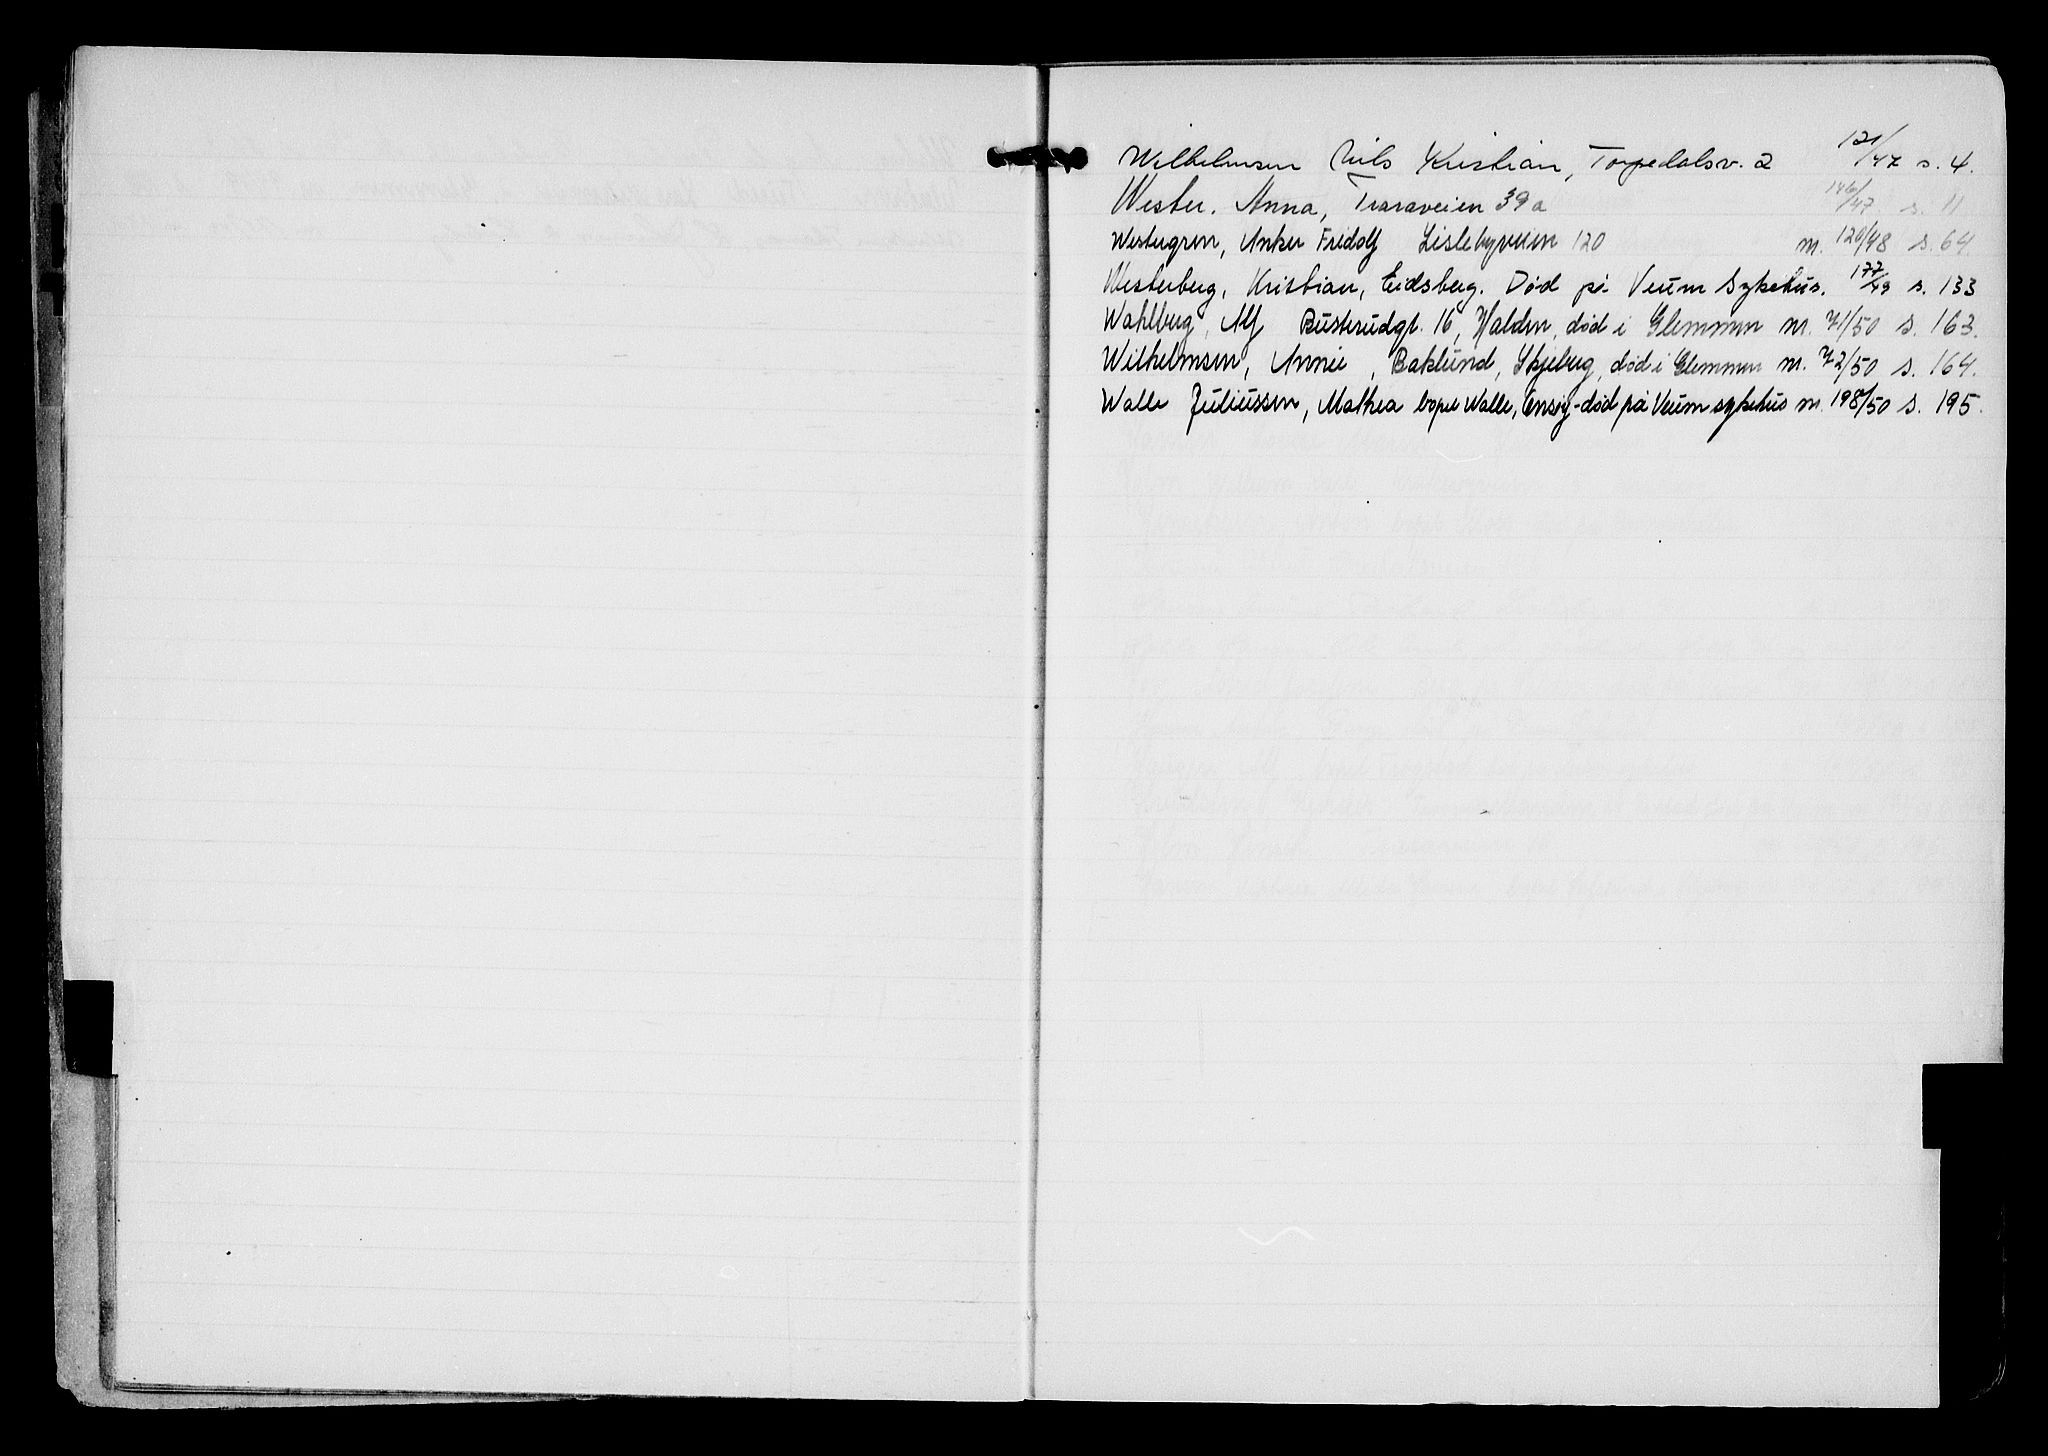 Wilhelmsen Nils Kristian, Torpedalsv. 2 121/47 s. 4.
Wester. Anna, Traraveien 39a 146/47 s. 11
Westergren, Anker Fridolf Lislebyveien 120 nr. 120/48 s. 64.
Westerberg, Kristian, Eidsberg. Død på Veum Sykehus. 177/49 s. 133
Wahlberg, Alf Busterudgt. 16, Halden, død i Glemmen nr. 71/50 s. 163.
Wilhelmsen, Annie, Baklund, Skjeberg, død i Glemmen nr. 72/50 s. 164.
Walle Juliussen, Mathea bopel Walle, Onsøy - død på Veum sykehus nr. 198/50 s. 195.